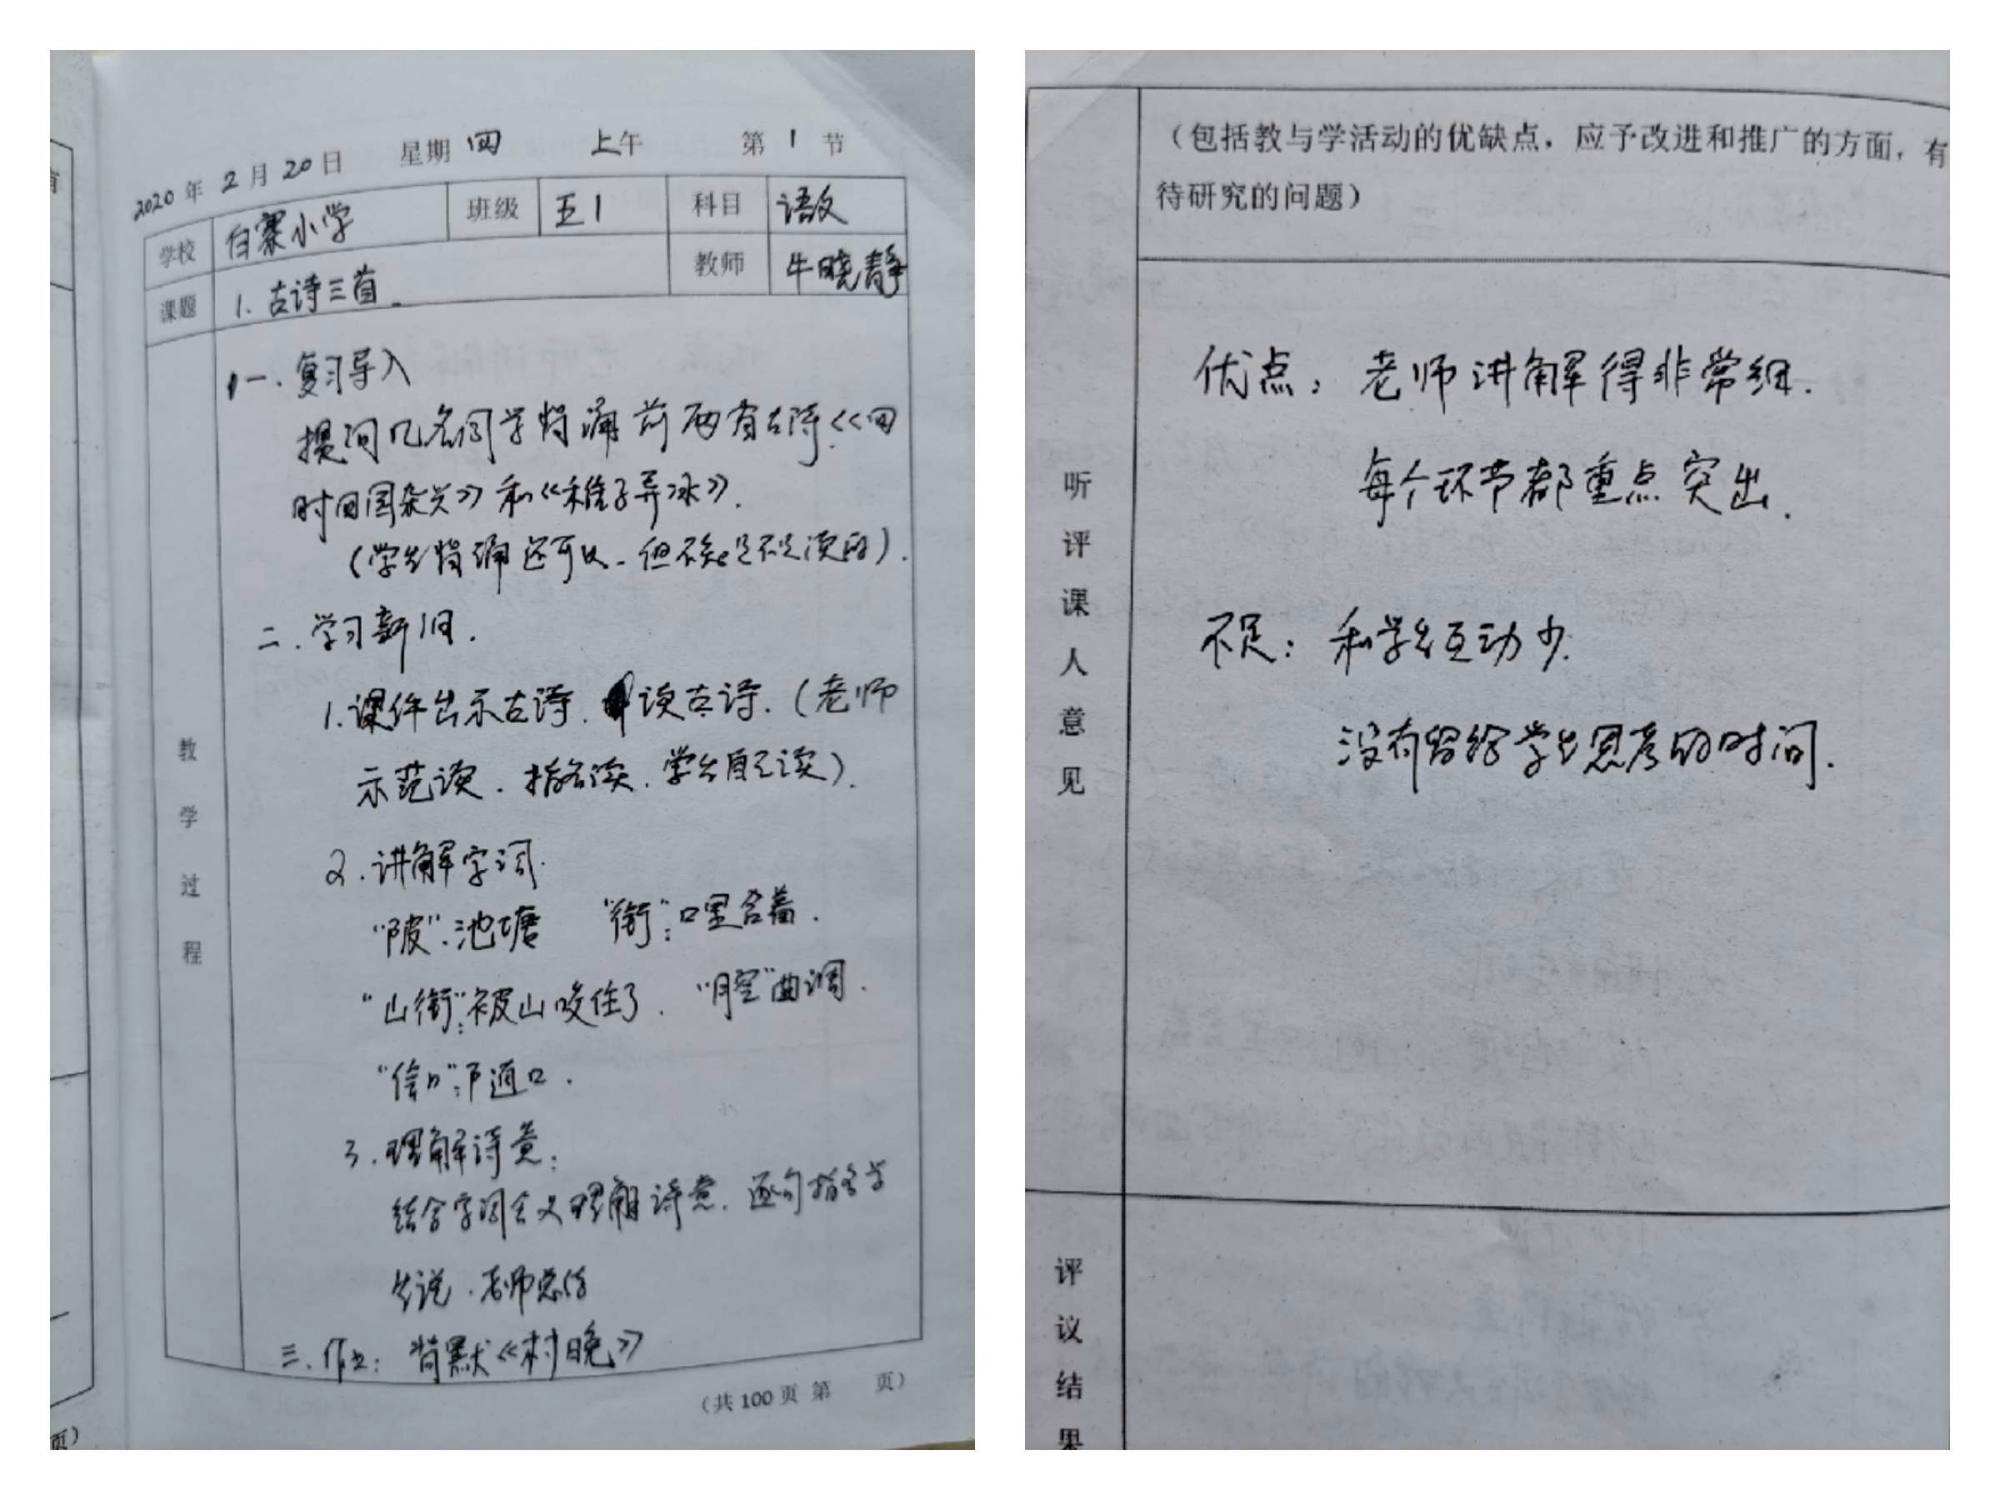 2020年2月20日 星期四 上午 第1节
学校 白寨小学 班级 五1 科目 语文
课题 1.古诗三首. 教师 牛晓静
教学过程
一.复习导入
提问几名同学背诵前两首古诗《四
时田园杂兴》和《稚子弄冰》.
(学生背诵还可以.但不是很.)
二.学习新知.
1.课件出示古诗.读古诗.(老师
示范读.指名读.学生自己读).
2.讲解字词.
"陂":池塘 "衔":口里含着.
"山衔":被山咬住了. "腔"曲调.
"信口":随口.
3.理解诗意:
结合字词含义理解诗意.逐句指名学
生说.老师总结
三.作业:背默《村晚》
(共100页 第 页)
页)
(包括教与学活动的优缺点,应予改进和推广的方面,有
待研究的问题)
听评课人意见
优点:老师讲解得非常细.
每个环节都重点突出.
不足:和学生互动少.
没有留给学生思考的时间.
评议结果